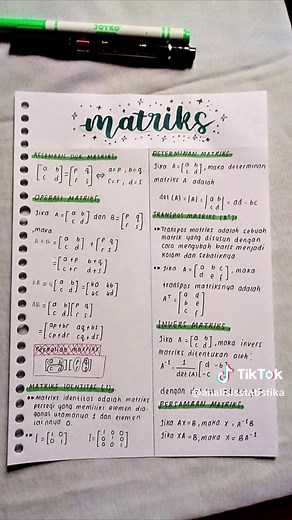 JOYKO
matriks
KESAMAAN DUA MATRIKS
[a b c d] = [p q r s] ⇔ a=p, b=q
c=r, d=s
OPERASI MATRIKS
Jika A = [a b c d] dan B = [p q r s]
, maka
A+B = [a b c d] + [p q r s]
= [a+p b+q c+r d+s]
kA = k [a b c d] = [ka kb kc kd]
AB = [a b c d] [p q r s]
= [ap+br aq+bs cp+dr cq+ds]
Perkalian matriks
MATRIKS IDENTITAS (I)
Matriks identitas adalah matriks
persegi yang memiliki elemen dia
gonal utamanya 1 dan elemen
lainnya 0.
I = [1 0 0 1] I = [1 0 0 0 1 0 0 0 1]
DETERMINAN MATRIKS
Jika A = [a b c d], maka determinan
matriks A adalah
det (A) = |A| = |a b c d| = ad - bc
TRANSPOS MATRIKS (Aᵀ)
Transpos matriks adalah sebuah
matrik yang disusun dengan
cara mengubah baris menjadi
kolom dan sebaliknya
Jika A = [a b c d e f], maka
transpos matriksnya adalah
Aᵀ = [a d b e c f]
INVERS MATRIKS
Jika A = [a b c d], maka invers
matriks ditentukan oleh:
A⁻¹ = 1 det(A) [d -b -c a]
dengan
TikTok
@analisisstatistika
PERSAMAAN MATRIKS
Jika AX = B, maka X = A⁻¹B
Jika XA = B, maka X = BA⁻¹